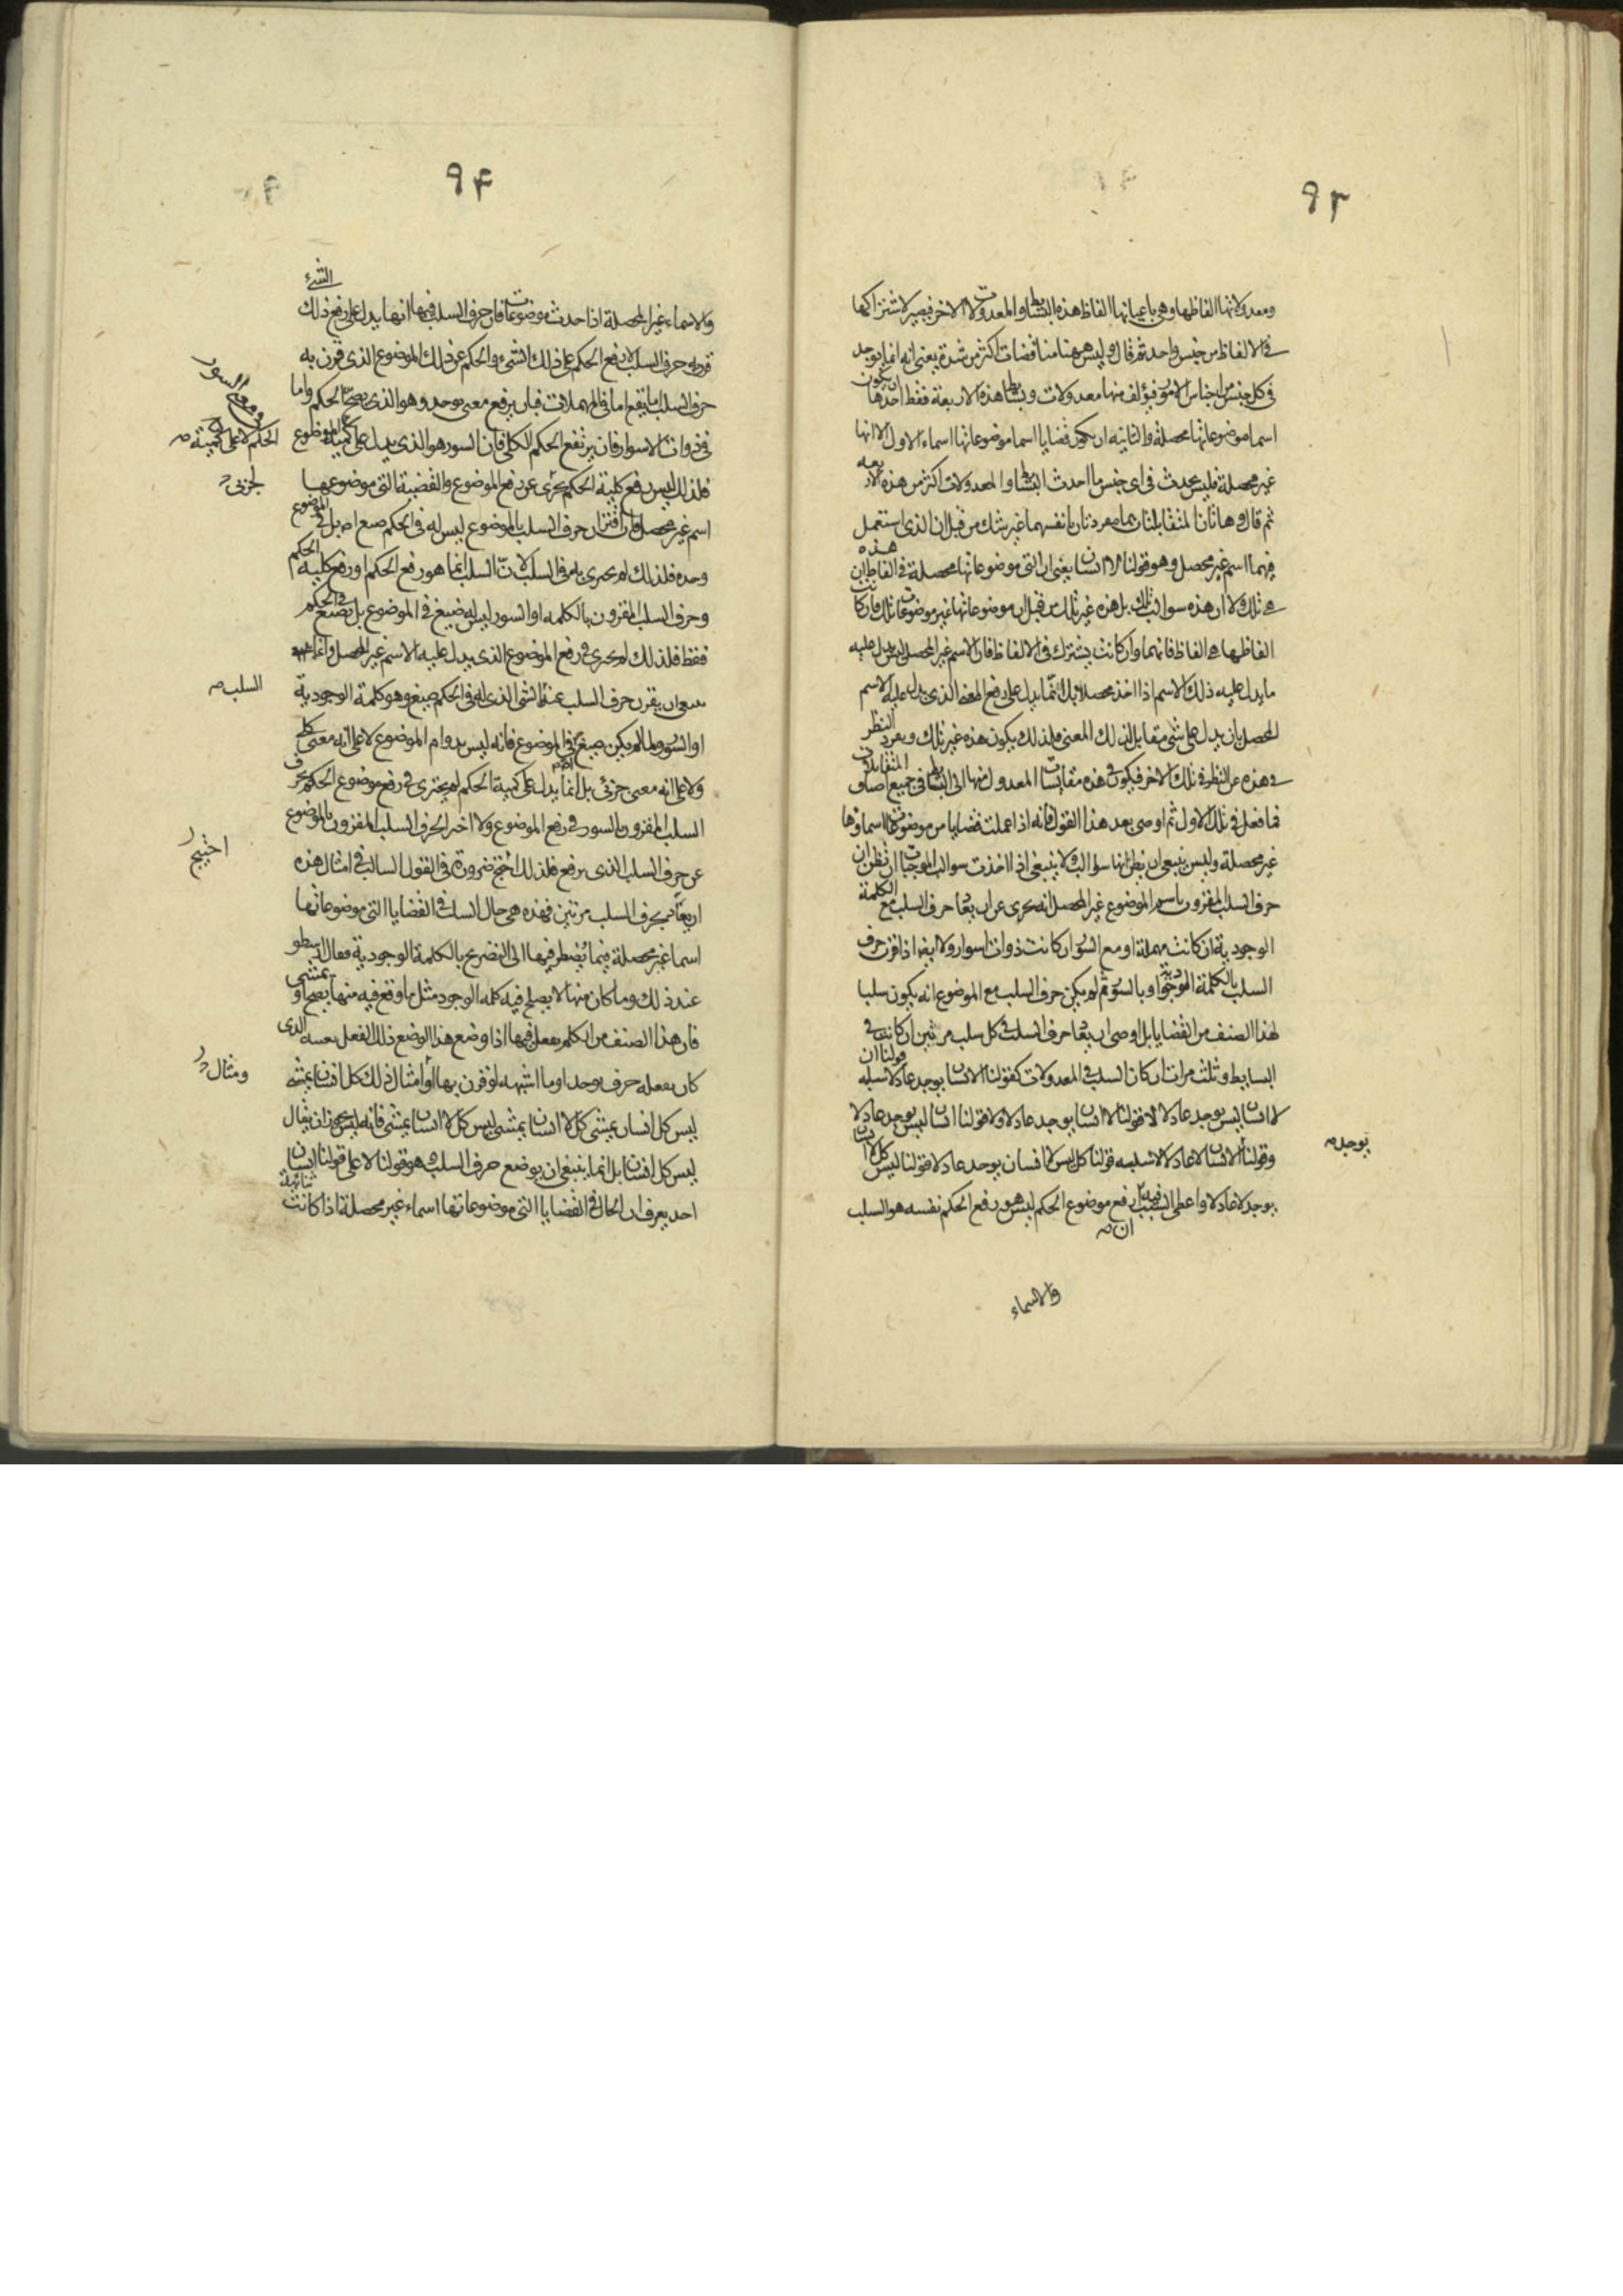 ٩٣
ومعدولاتها الفاظها وهي باعيانها الفاظ هذه البسائط والمعدولات الاخر فيصير لاشتراكها
في الالفاظ من جنس واحد ثم قال وليس ههنا مناقضات اكثر من هذه يعني انه انما يوجد
في كل جنس من اجناس الامور فيؤلف منها معدولات وبسائط هذه الاربعة فقط احدها ان يكون
اسما موضوعاتها محصلة والثانية ان يكون قضايا اسما موضوعاتها اسماء الاول الا انها
غير محصلة فليس يحدث في اى جنس ما احدث البسائط والمعدولات اكثر من هذه الاربعة
ثم قال وهاتان المتقابلتان هما مفردتان بانفسهما غير تلك من قبل ان الذى استعمل
فيهما اسم غير محصل وهو قولنا لا انسان يعني ان التي موضوعاتها محصلة في الفاظ هذه
هي تلك ولا ان هذه سوالب تلك بل هذه غير تلك من قبل ان موضوعاتها غير موضوعات تلك فان كانت
الفاظها هي الفاظ فانهما وان كانت يشترك في الالفاظ فان الاسم غير المحصل ليس يدل عليه
ما يدل عليه ذلك الاسم اذا اخذ محصلا بل انما يدل على رفع المعنى الذى يدل عليه الاسم
المحصل بان يدل على شى مقابل لذلك المعنى فلذلك يكون هذه غير تلك ويفرد النظر
في هذه عن النظر في تلك الاخر فيكون في هذه مقايسات المعدول منها الى البسائط في جميع اصناف المتقابلات
فما فعل في تلك الاول ثم اوصى بعد هذا القول فانه اذا عملت قضايا من موضوعاتها اسماؤها
غير محصلة وليس ينبغي ان يظن انها سوالب ولا ينبغي اذا اخذت سوالب الموجبات ان نظن ان
حرف السلب المقرون باسم الموضوع غير المحصل انه يجزى عن ان حرف السلب مع الكلمة
الوجودية ان كانت مهملة او مع السور ان كانت ذوات اسوار ولا ايضا اذا قرن حرف
السلب بالكلمة الوجودية او بالسور ثم لم يكن حرف السلب مع الموضوع انه يكون سلبا
لهذا الصنف من القضايا بل اوصى ان حرف السلب في كل سلب مرتين ان كانت في
البسايط وثلث مرات ان كان السلب في المعدولات كقولنا لا انسان يوجد عادلا سلبه قولنا ان
لا انسان ليس يوجد عادلا لا قولنا لا انسان يوجد عادلا ولا قولنا انسان ليس يوجد عادلا
وقولنا لا انسان لا عادلا سلبه قولنا كل ليس لا انسان يوجد عادلا قولنا ليس كل لا انسان
يوجد
يوجد لا عادلا واعطى السبب فيه ان رفع موضوع الحكم ليس هو رفع الحكم نفسه هو السلب
ان
والاسماء
٩٤
والاسماء غير المحصلة اذا حدث موضوعات فان حرف السلب فيها انها يدل على رفع ذلك الشئ
قرن به حرف السلب لا رفع الحكم على ذلك الشئ والحكم عن ذلك الموضوع الذى قرن به
حرف السلب ما يقع اما في المهملات فبان يرفع معنى يوجد وهو الذى يصح الحكم واما
في ذوات الاسوار فان يرتفع الحكم الكلى فان السور هو الذى يدل على كمية الموضوع
ورفع السور
الحكم لا على كمية
فلذلك ليس رفع كلية الحكم يجزى عن رفع الموضوع والقضية التي موضوعها
الجزئى
اسم غير محصل فان اقتران حرف السلب بالموضوع ليس له في الحكم صنع ام بل في الموضوع
وحده فلذلك لم يجزى به في السلب لان السلب انما هو رفع الحكم او رفع كلية الحكم
وحرف السلب المقرون بالكلمه او السور ليس له صنع في الموضوع بل يصنع في الحكم
فقط فلذلك لم يجزى في رفع الموضوع الذى يدل عليه الاسم غير المحصل وانما
ينبغى ان يقرن حرف السلب عند الشى الذى له في الحكم صنع وهو كلمة الوجودية
السلب
او السور ولما لم يكن صنع في الموضوع فانه ليس يدوام الموضوع لا على انه معنى كلى
ولا على انه معنى جزئى بل انما يدل على كمية الحكم لم يجتزى في رفع موضوع الحكم بحرف
السلب المقرون بالسور في رفع الموضوع ولا اخر الحرف السلب المقرون بالموضوع
عن حرف السلب الذى يرفع فلذلك احتج ضرورة في القول السالب في امثال هذه
احتيج
بحرف السلب مرتين فهذه هي حال السلب في القضايا التي موضوعاتها
اسما غير محصلة فيما يضطر فيها الى التصريح بالكلمة الوجودية فقال ارسطو
عند ذلك وما كان منها لا يصلح فيه كلمه الوجود مثل ما وقع فيه منها يصح او يمشى
فان هذا الصنف من الكلم يفعل فيها اذا وضع هذا الوضع ذلك الفعل بعينه الذى
كان يفعله حرف يوجد او ما اشبهه لو قرن بها او امثال ذلك كل انسان يمشى
ومثال
ليس كل انسان يمشى كل لا انسان يمشى ليس كل لا انسان يمشى فانه ليس يجوز ان يقال
ليس كل انسان بل انما ينبغى ان يوضع حرف السلب وهو قولنا لا على قولنا انسان
احد يعرف ان الحال في القضايا التي موضوعاتها اسماء غير محصلة اذا كانت ثنائية